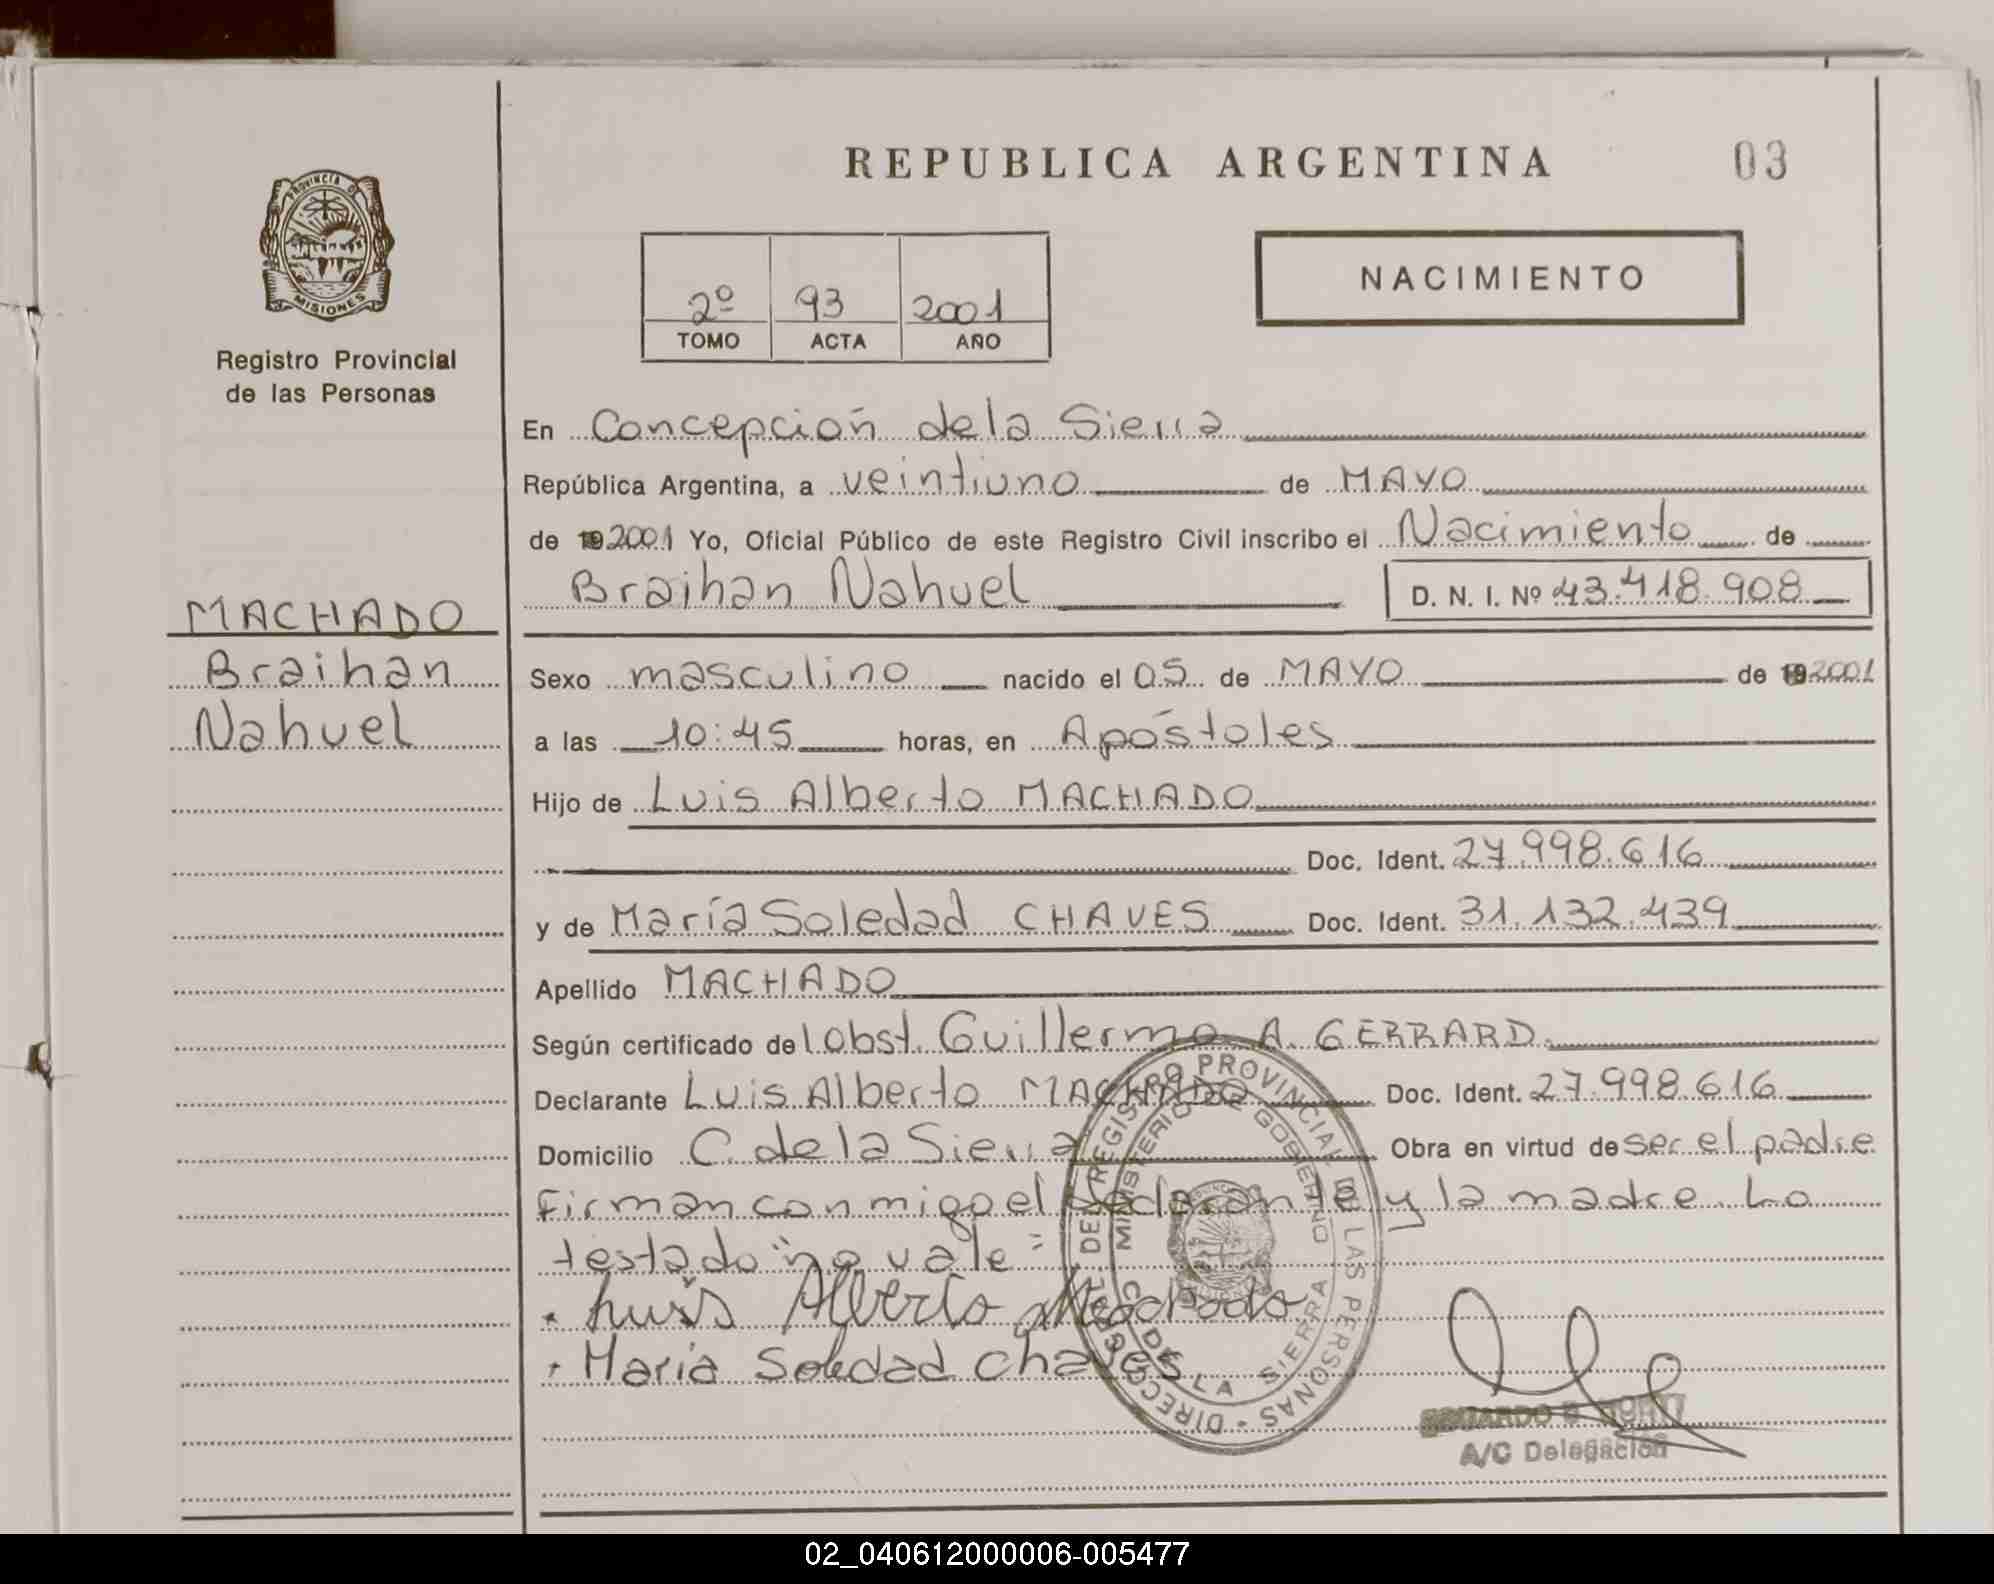 REPUBLICA ARGENTINA
03
PROVINCIA DE
MISIONES
Registro Provincial
de las Personas
2º 93 2001
TOMO ACTA AÑO
NACIMIENTO
En Concepción de la Sierra
República Argentina, a veintiuno de MAYO
de 19 2001 Yo, Oficial Público de este Registro Civil inscribo el Nacimiento de
Braihan Nahuel D. N. I. Nº 43.418.908
MACHADO
Braihan
Nahuel
Sexo masculino nacido el 05 de MAYO de 19 2001
a las 10:45 horas, en Apóstoles
Hijo de Luis Alberto MACHADO
Doc. Ident. 27.998.616
y de María Soledad CHAVES Doc. Ident. 31.132.439
Apellido MACHADO
Según certificado de l Obst. Guillermo A. GERRARD.
Declarante Luis Alberto MACHADO Doc. Ident. 27.998.616
Domicilio C. de la Sierra Obra en virtud de ser el padre
Firman conmigo el declarante y la madre. Lo
testado "no vale"
Luis Alberto Machado
Maria Soledad Chaves
DIRECC. GRAL. DEL REGISTRO PROVINCIAL DE LAS PERSONAS
MINISTERIO DE GOBIERNO
C. DE LA SIERRA
A/C Delegación
02_040612000006-005477